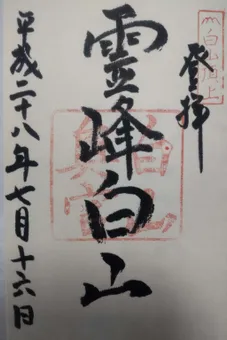 白山頂上
登拝
霊峰白山
平成二十八年七月十六日